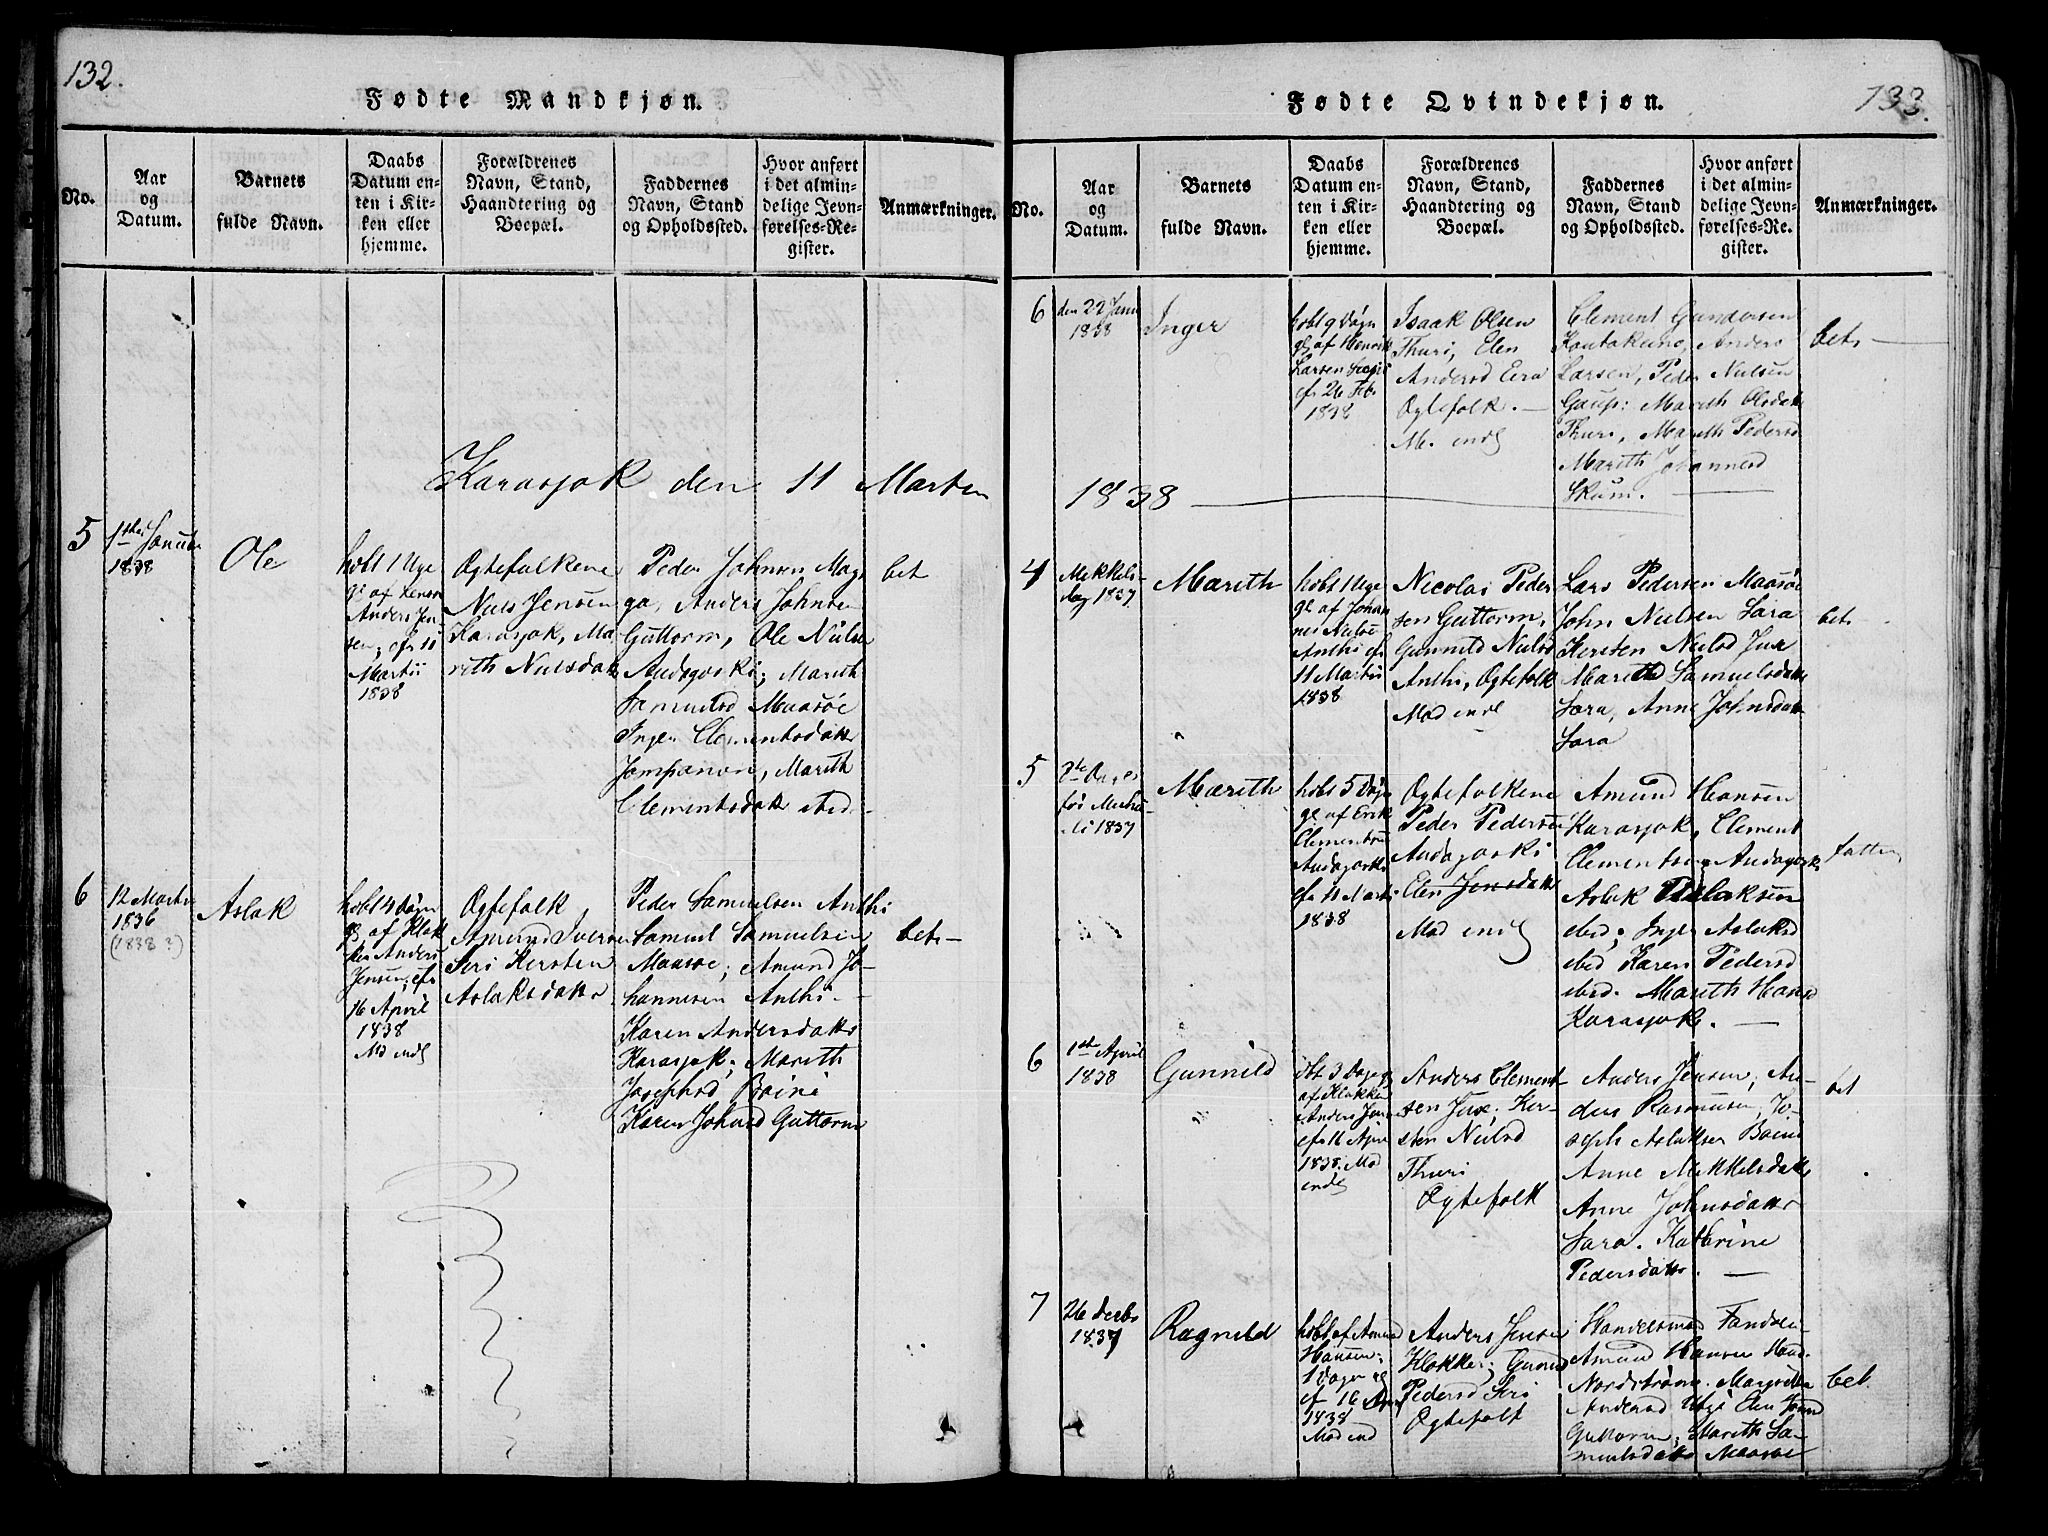 132.
Fødte Mandkjøn.
No.
Aar
og
Datum.
Barnets
fulde Navn.
Daabs
Datum en-
ten i Kir-
ken eller
hjemme.
Forældrenes
Navn, Stand,
Haandtering og
Boepæl.
Faddernes
Navn, Stand
og Opholdssted.
Hvor anført
i det almin-
delige Jevn-
førelses-Re-
gister.
Anmærkninger.
Karasjok den 11 Marten
5
1ste Januar
1838
Ole
hobt 1 Uge
af
Anders Jen-
sen, cfr 11
Martii
1838
Ogtefolkene
Niels Jensen
Karasjok, Ma
reth Nielsdatt
Peder Johnsen Mag-
ga, Anders Johnsen
Guttorm, Ole Nielse
Andagoski; Mareth
Samuelsd Maasøe
Inger Clementsdatt
Jompanon, Mareth
Clementsdatt ibed.
bet
6
12 Martz
1836
(1838?)
Aslak
hobt 4 Døgn
gl. af Klok
ker Anders
Jensen; cfr
16 April
1838
Md endl
Ogtefolk
Amund Iversen
Siri Kersten
Aslaksdattr
Peder Samuelsen Anthi
Samuel Samuelsen
Maasøe; Amund Jo-
hannesen Anthi-
Karen Andersdattr
Karasjok; Mareth
Josephsd Boini
Karen Johnsd Guttorm
bet-
133.
Fødte Qvindekjøn.
No.
Aar
og
Datum.
Barnets
fulde Navn.
Daabs
Datum en-
ten i Kir-
ken eller
hjemme.
Forældrenes
Navn, Stand,
Haandtering og
Boepæl.
Faddernes
Navn, Stand
og Opholdssted.
Hvor anført
i det almin-
delige Jevn-
førelses-Re-
gister.
Anmærkninger.
6
den 22 Janu
1838
Inger
hobt 9 Døgn
gl. af Henrik
Larsen
cfr 26 Feb.
1838
Isaak Olsen
Thuri, Elen
Andersd Eira
Ogtefolk.
M. endl
Clement Gundersen
Koutokeino, Anders
Larsen, Peder Nielsen
Gaup: Mareth Olsdatt
Thuri, Mareth Pedersd
Mareth Johannesd
Skum.
bet-
1838
4
Mikkels-
dag 1837
Mareth
hobt 1 Uge
gl af Johan
nes Nielse
Anthi cfr
11 Martii
1838
Nicolai Peder
sen Guttorm,
Gunnild Nielsd
Anthi, Ogtefolk
Mod endl
Lars Pedersen Maasøe
John Nielsen Sara
Kersten Nielsd Jux
Mareth Samuelsdatt
Sara, Anne Johnsdatt
Sara
bet-
5
1837
Mareth
hobt 5 Døgn
gl af Erik
Clementsen
Andagoski
cfr 11 Marti
1838
Ogtefolkene
Peder Pedersen
Andagoski
Elen Jensdatt
Mod endl
Amund Hansen
Karasjok, Clement
Clementsen Andagosk
Aslak Aslaksen
ibed; Inger Aslaksd
ibed Karen Pedersd
ibed. Mareth Hansd
Karasjok.
fattig
6
1ste April
1838
Gunnild
3 Dage gl
af Klokker
Anders Jens
cfr 16 Apr
1838. Mod
endl
Anders Clement
sen Jux; Ker-
sten Nielsd
Thuri
Ogtefolk
Anders Jensen; An-
ders Rasmusen, Jo-
seph Aslaksen Boini
Anne Mekkelsdatt
Anne Johnsdattr
Sara. Kathrine
Pedersdattr.
bet
7
26 Decbr
1837
Ragnild
hobt af Amund
Hansen;
1 Dage gl
cfr 16 Apr
1838
Mod end
Anders Jensen
Klokker; Gunild
Pedersd Siri
Ogtefolk
Handelsmd
Amund Hansen
Nordstrøm. Margrethe
Andersd Utsi Elen Johnsd
Guttorm; Mareth Sa-
muelsdatt Maasøe
bet.